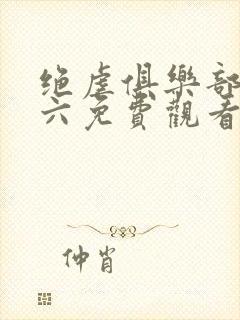 绝虐俱樂部
六免費觀看
仲肖